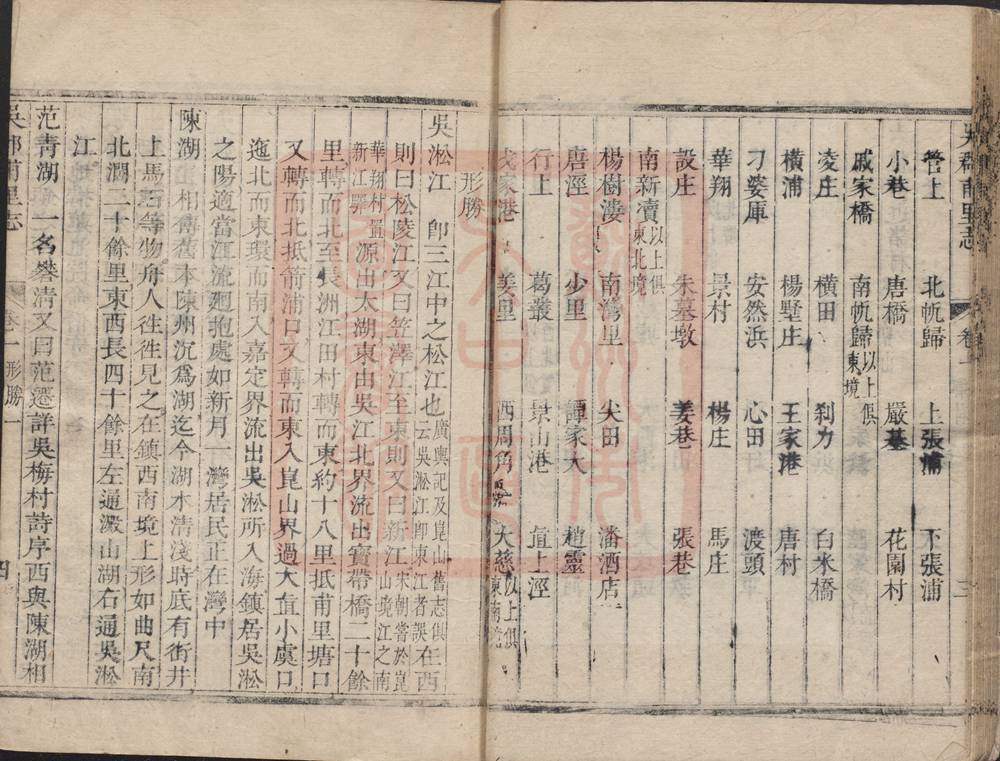 吳郡甫里志 卷一 三
管上 北帆歸 上張浦 下張浦
小巷 唐橋 嚴墓 花園村
戚家橋 南帆歸 以上俱東境
凌庄 橫田 刹力 白米橋
橫浦 楊墅庄 王家港 唐村
刁婆庫 安然浜 心田 渡頭
華翔 景村 楊庄 馬庄
設庄 朱墓墩 姜巷 張巷
南新瀆 以上俱東北境
楊樹漊 南灣里 尖田 潘酒店
唐涇 少里 譚家 趙靈
行上 葛叢 景山港 直上涇
家港 姜里 西周角 大慈 以上俱東南境
形勝
吳淞江 卽三江中之松江也 廣輿記及崑山舊志俱云吳淞江卽東江者誤 在西
則曰松陵江又曰笠澤江至東則又曰新江 宋朝嘗於崑山境江之南華翔村置新江驛
源出太湖東由吳江北界流出寶帶橋二十餘
里轉而北至長洲江田村轉而東約十八里抵甫里塘口
又轉而北抵箭浦口又轉而東入崑山界過大直小虞口
迤北而東環而南入嘉定界流出吳淞所入海鎮居吳淞
之陽適當江流廻抱處如新月一灣居民正在灣中
陳湖 相傳舊本陳州沉爲湖迄今湖水清淺時底有街井
上馬石等物舟人徃徃見之在鎮西南境上形如曲尺南
北濶二十餘里東西長四十餘里左通澱山湖右通吳淞
江
范青湖 一名攀清又曰范遷詳吳梅村詩序西與陳湖相
吳郡甫里志 卷一 形勝一 四